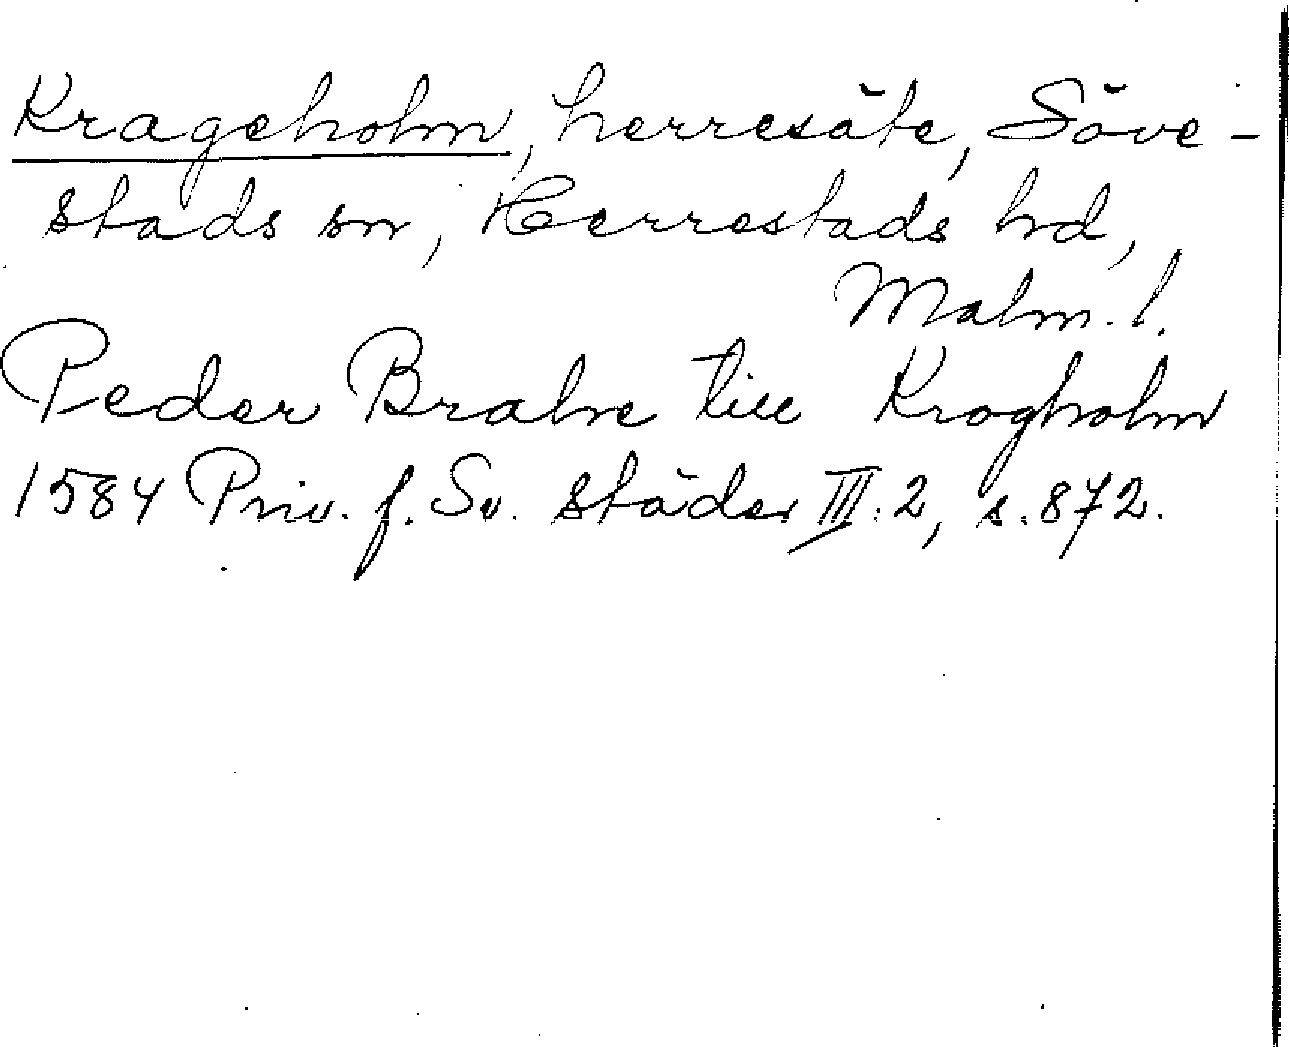 Krageholm, herresäte, Söve-
stads sn, Herrestads hd,
Malm. l.
Peder Brahe till Krogholm
1584 Priv. f. Sv. städer III:2, s. 872.